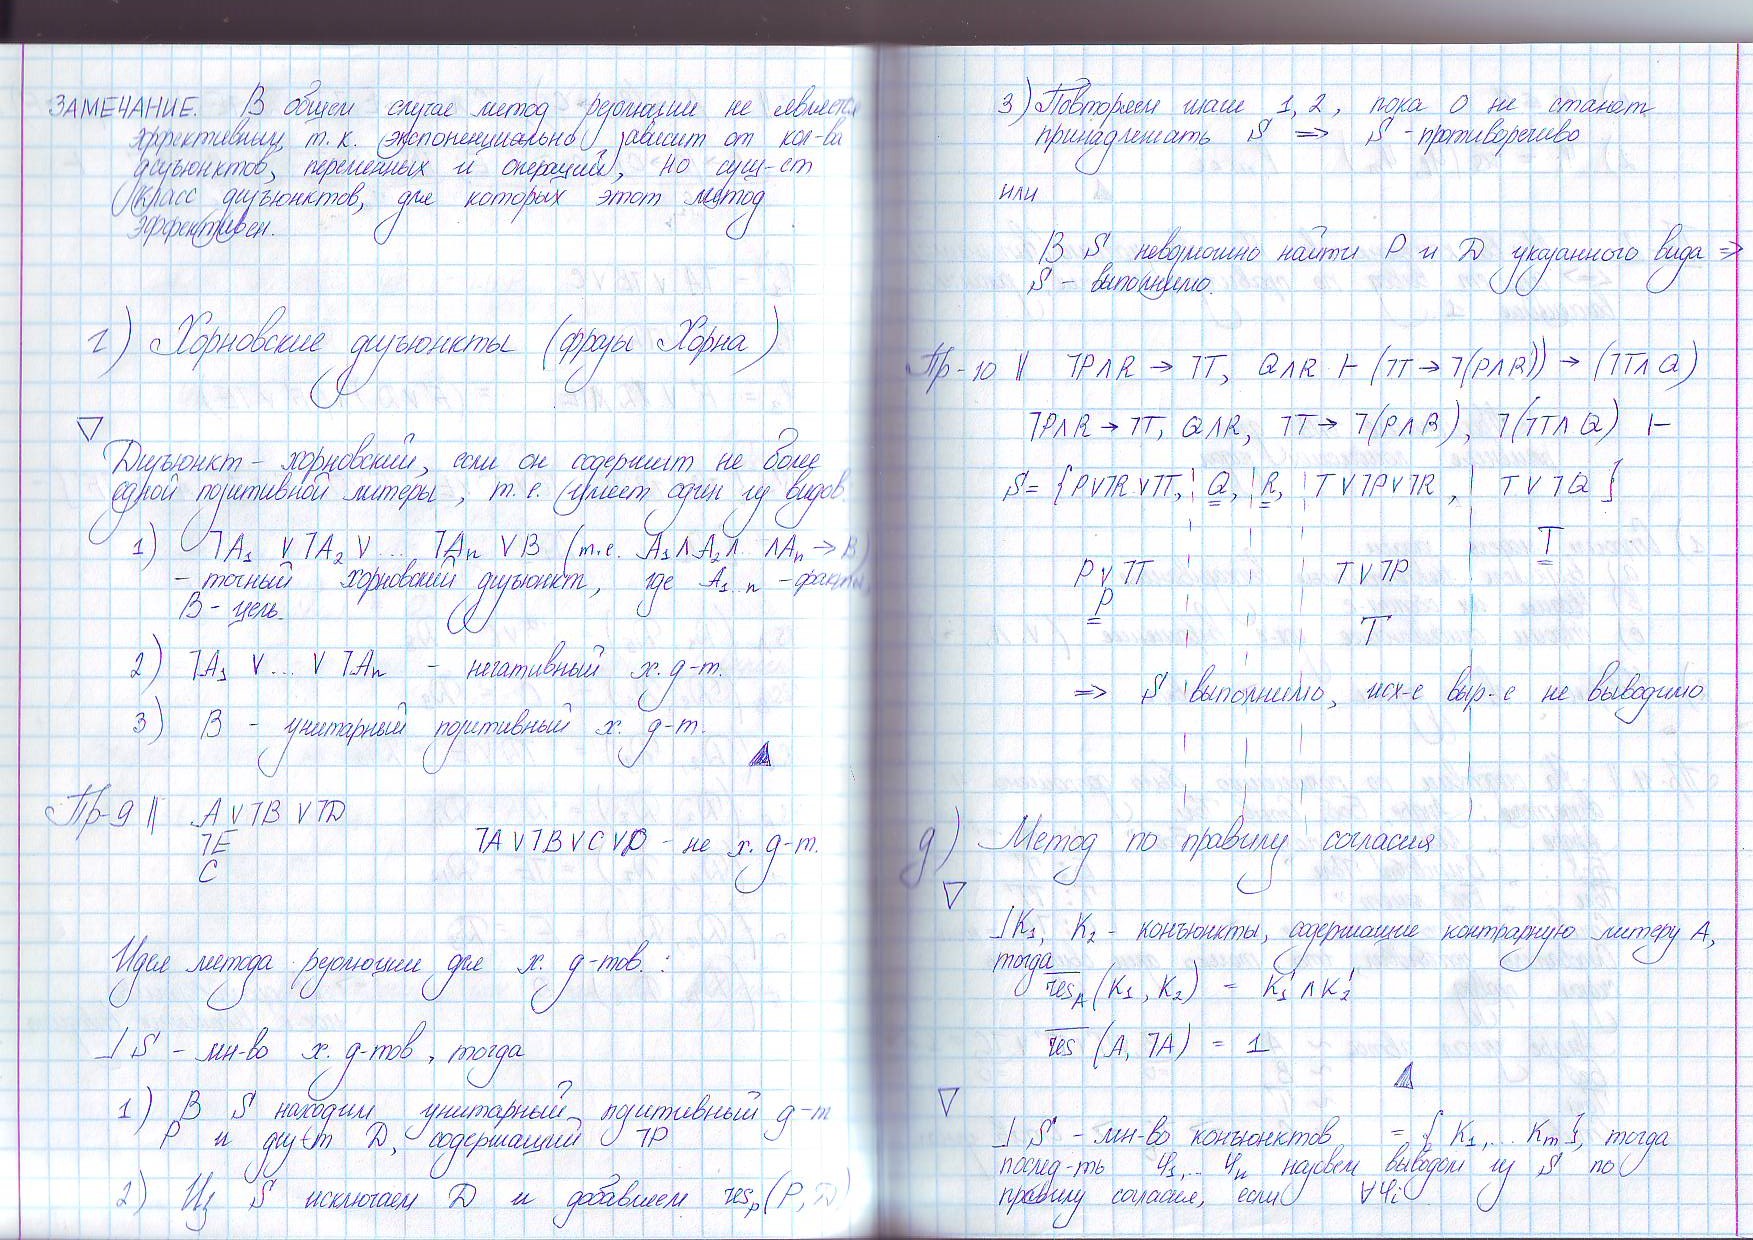 ЗАМЕЧАНИЕ. В общем случае метод резолюции не является
эффективным, т.к. экспоненциально зависит от кол-ва
дизъюнктов, переменных и операций, но сущ-ет
класс дизъюнктов, для которых этот метод
эффективен.
г) Хорновские дизъюнкты (фразы Хорна)
▽
Дизъюнкт - хорновский, если он содержит не более
одной позитивной литеры, т.е. имеет один из видов
1) ¬A₁ ∨ ¬A₂ ∨ ... ¬Aₙ ∨ B (т.е. A₁∧A₂∧.. ∧Aₙ → B)
- точный хорновский дизъюнкт, где A₁..ₙ - факты,
B - цель.
2) ¬A₁ ∨ ... ∨ ¬Aₙ - негативный х. д-т.
3) B - унитарный позитивный х. д-т.
Пр-9 || A ∨ ¬B ∨ ¬D
¬E ¬A ∨ ¬B ∨ C ∨ D - не х. д-т.
C
Идея метода резолюции для х. д-тов. :
⅃ S - мн-во х. д-тов, тогда
1) В S находим унитарный позитивный д-т
P и диз-т D, содержащий ¬P
2) Из S исключаем D и добавляем res_P(P, D)
3) Повторяем шаги 1, 2, пока 0 не станет
принадлежать S ⇒ S - противоречиво
или
В S невозможно найти P и D указанного вида ⇒
S - выполнимо.
Пр-10 || ¬P∧R → ¬T, Q∧R ⊢ (¬T → ¬(P∧R)) → (¬T∧Q)
¬P∧R → ¬T, Q∧R, ¬T → ¬(P∧R), ¬(¬T∧Q) ⊢
S = {P∨¬R∨¬T, Q, R, T∨¬P∨¬R, T∨¬Q}
T
P∨¬T T∨¬P
P
T
⇒ S выполнимо, исх-е выр-е не выводимо
д) Метод по правилу согласия
▽
⅃ K₁, K₂ - конъюнкты, содержащие контрарную литеру A,
тогда
r̅e̅s̅_A (K₁, K₂) = K₁' ∧ K₂'
r̅e̅s̅ (A, ¬A) = 1
▽
⅃ S - мн-во конъюнктов = {K₁, ... Kₘ}, тогда
послед-ть φ₁,.. φₙ назовем выводом из S по
правилу согласия, если ∀φᵢ